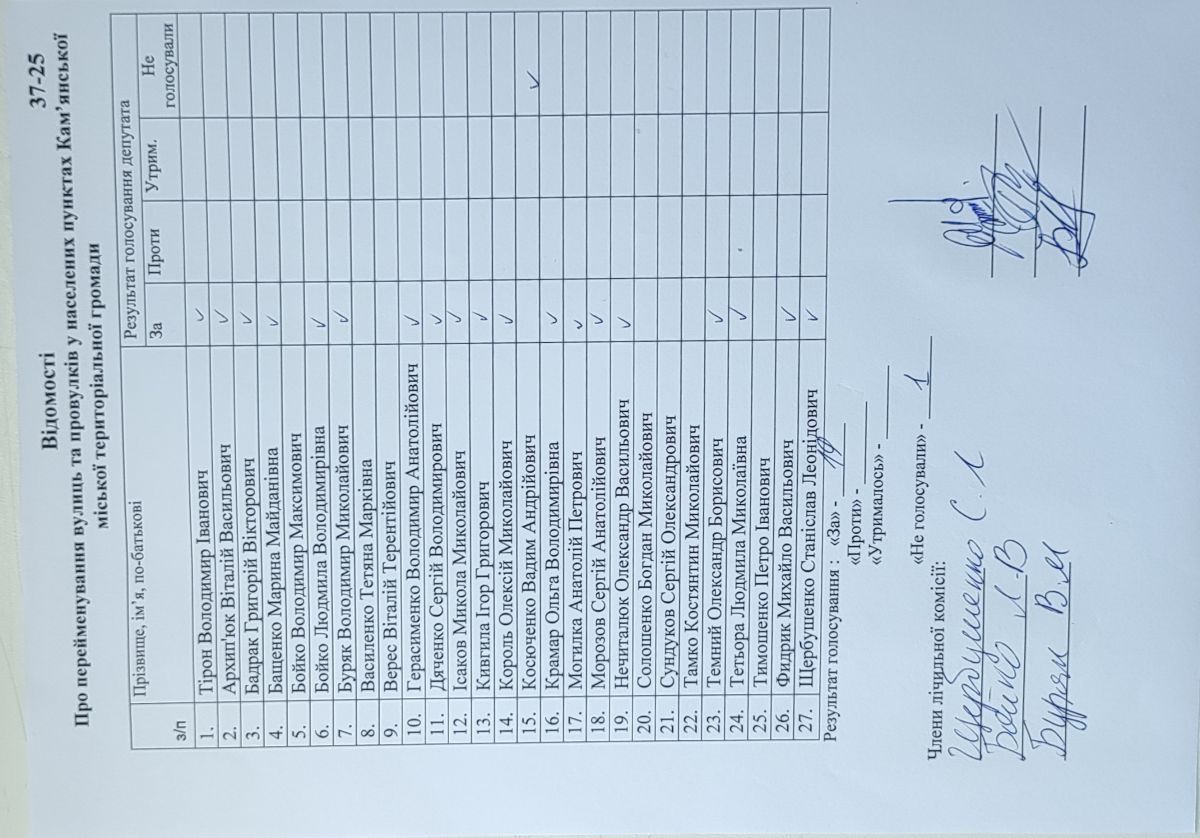 37-25
Відомості
Про перейменування вулиць та провулків у населених пунктах Кам’янської
міської територіальної громади
з/п Прізвище, ім’я, по-батькові Результат голосування депутата
За Проти Утрим. Не голосували
1. Тірон Володимир Іванович ✓
2. Архип'юк Віталій Васильович ✓
3. Бадрак Григорій Вікторович ✓
4. Бащенко Марина Майданівна ✓
5. Бойко Володимир Максимович
6. Бойко Людмила Володимирівна ✓
7. Буряк Володимир Миколайович ✓
8. Василенко Тетяна Марківна
9. Верес Віталій Терентійович
10. Герасименко Володимир Анатолійович ✓
11. Дяченко Сергій Володимирович ✓
12. Ісаков Микола Миколайович ✓
13. Кивгила Ігор Григорович ✓
14. Король Олексій Миколайович ✓
15. Косюченко Вадим Андрійович ✓
16. Крамар Ольга Володимирівна ✓
17. Могилка Анатолій Петрович ✓
18. Морозов Сергій Анатолійович ✓
19. Нечиталюк Олександр Васильович ✓
20. Солошенко Богдан Миколайович
21. Сундуков Сергій Олександрович
22. Тамко Костянтин Миколайович
23. Темний Олександр Борисович ✓
24. Тетьора Людмила Миколаївна ✓
25. Тимошенко Петро Іванович
26. Фидрик Михайло Васильович ✓
27. Щербушенко Станіслав Леонідович ✓
Результат голосування : «За» - 19
«Проти» -
«Утрималось» -
«Не голосували» - 1
Члени лічильної комісії:
Щербушенко С.Л
Бойко Л.В
Буряк В.М